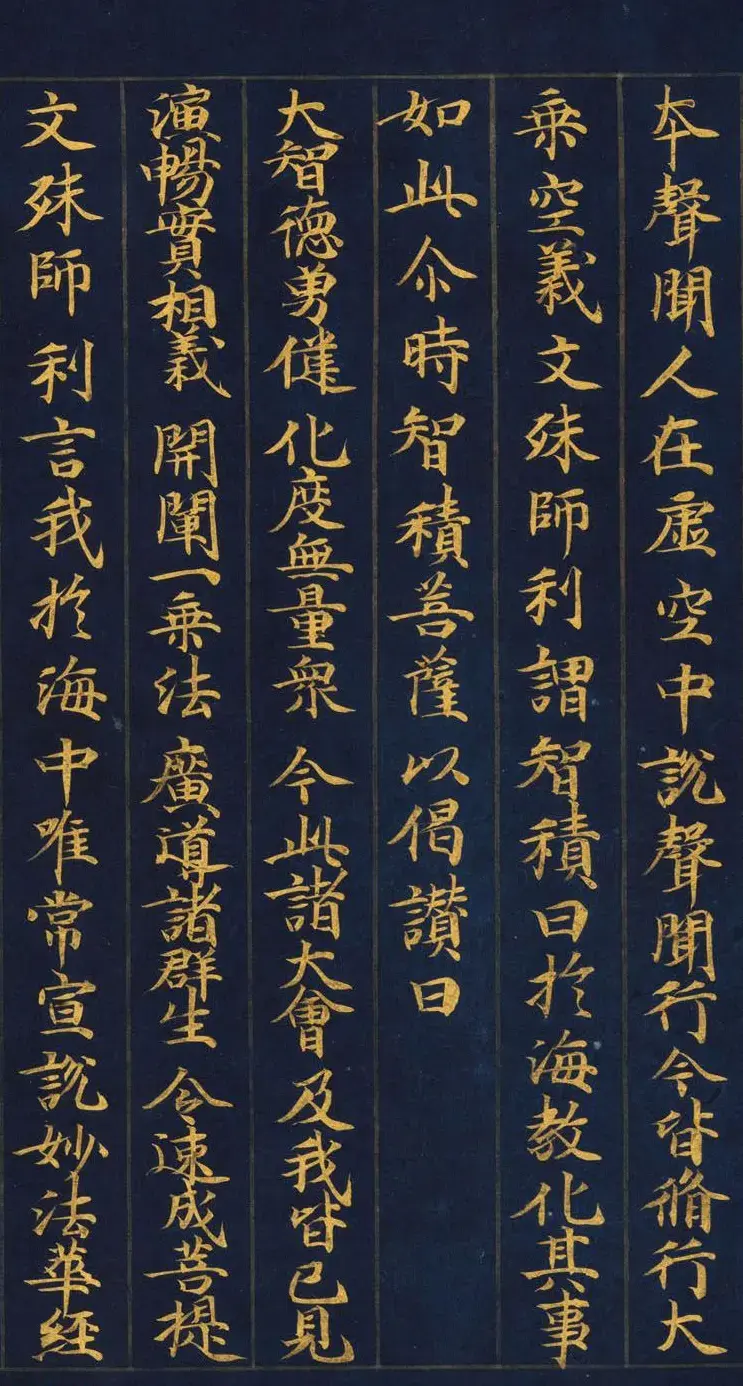 本聲聞人在虛空中說聲聞行今皆脩行大
乘空義文殊師利謂智積曰於海教化其事
如此尒時智積菩薩以偈讃曰
大智德勇健 化度無量衆 今此諸大會及我皆已見
演暢實相義 開闡一乘法 廣道諸群生 令速成菩提
文殊師利言我於海中唯常宣說妙法華經